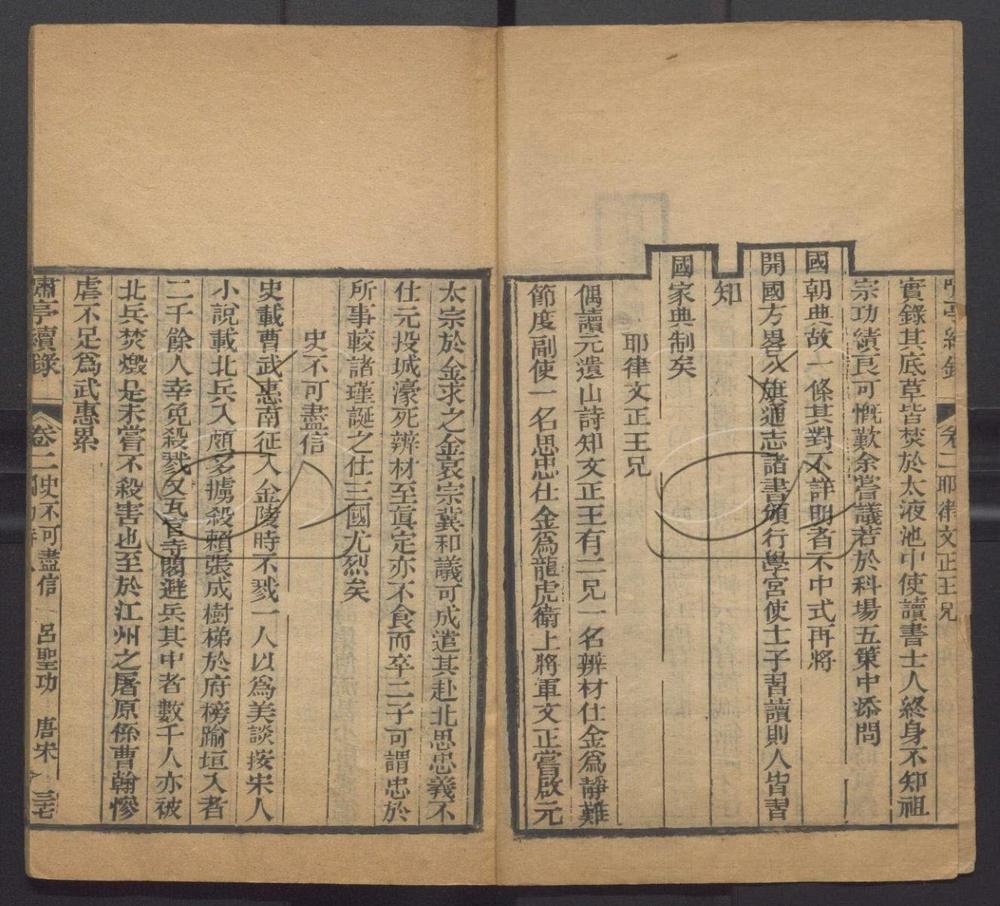 實錄其底草皆焚於太液池中使讀書士人終身不知祖
宗功績良可慨歎余嘗議若於科場五策中添問
國朝典故一條其對不詳明者不中式再將
開國方畧八旗通志諸書頒行學宮使士子習讀則人皆習
知
國家典制矣
耶律文正王兄
偶讀元遺山詩知文正王有二兄一名辨材仕金爲靜難
節度副使一名思忠仕金爲龍虎衛上將軍文正嘗啟元
太宗於金求之金哀宗冀和議可成遣其赴北思忠義不
仕元投城濠死辨材至眞定亦不食而卒二子可謂忠於
所事較諸瑾誕之仕三國尤烈矣
史不可盡信
史載曹武惠南征入金陵時不戮一人以爲美談按宋人
小說載北兵入頗多擄殺賴張成樹梯於府榜踰垣入者
二千餘人幸免殺戮又瓦官寺閣避兵其中者數千人亦被
北兵焚燬是未嘗不殺害也至於江州之屠原係曹翰慘
虐不足爲武惠累
嘯亭續錄 卷二 史不可盡信 呂聖功 唐宋 三七
卷二 耶律文正王兄